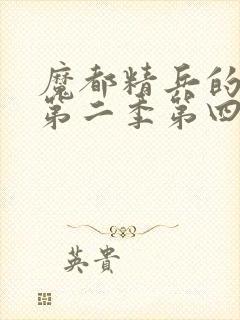 魔都精兵的
第二季第四
英貴